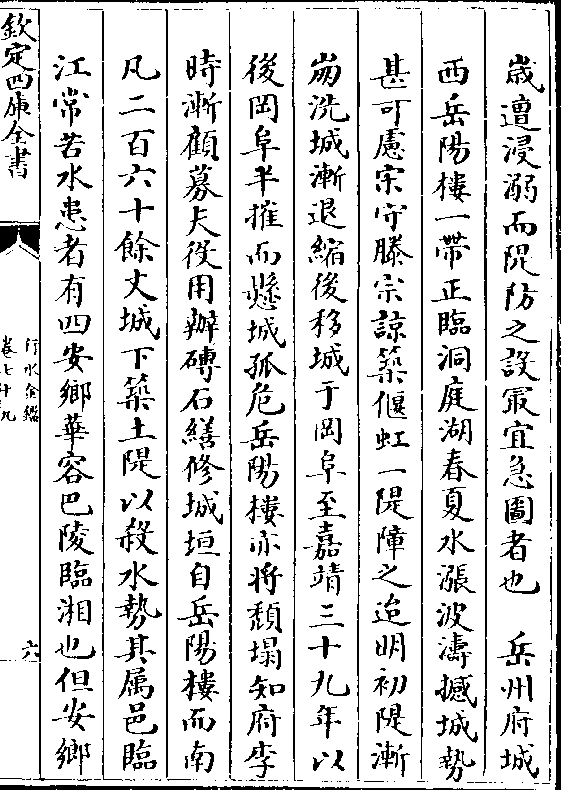 歲遭浸溺而隄防之設最宜急圖者也　岳州府城
西岳陽樓一帶正臨洞庭湖春夏水漲波濤撼城勢
甚可慮宋守滕宗諒築偃虹一隄障之迨明初隄漸
崩洗城漸退縮後移城于岡阜至嘉靖三十九年以
後岡阜半摧而懸城孤危岳陽樓亦將頽塌知府李
時漸顧募夫役用辦磚石繕修城垣自岳陽樓而南
凡二百六十餘丈城下築土隄以殺水勢其属邑臨
江常苦水患者有四安鄉華容巴陵臨湘也但安鄉
欽定四庫全書
行水金鑑
卷七十九
六